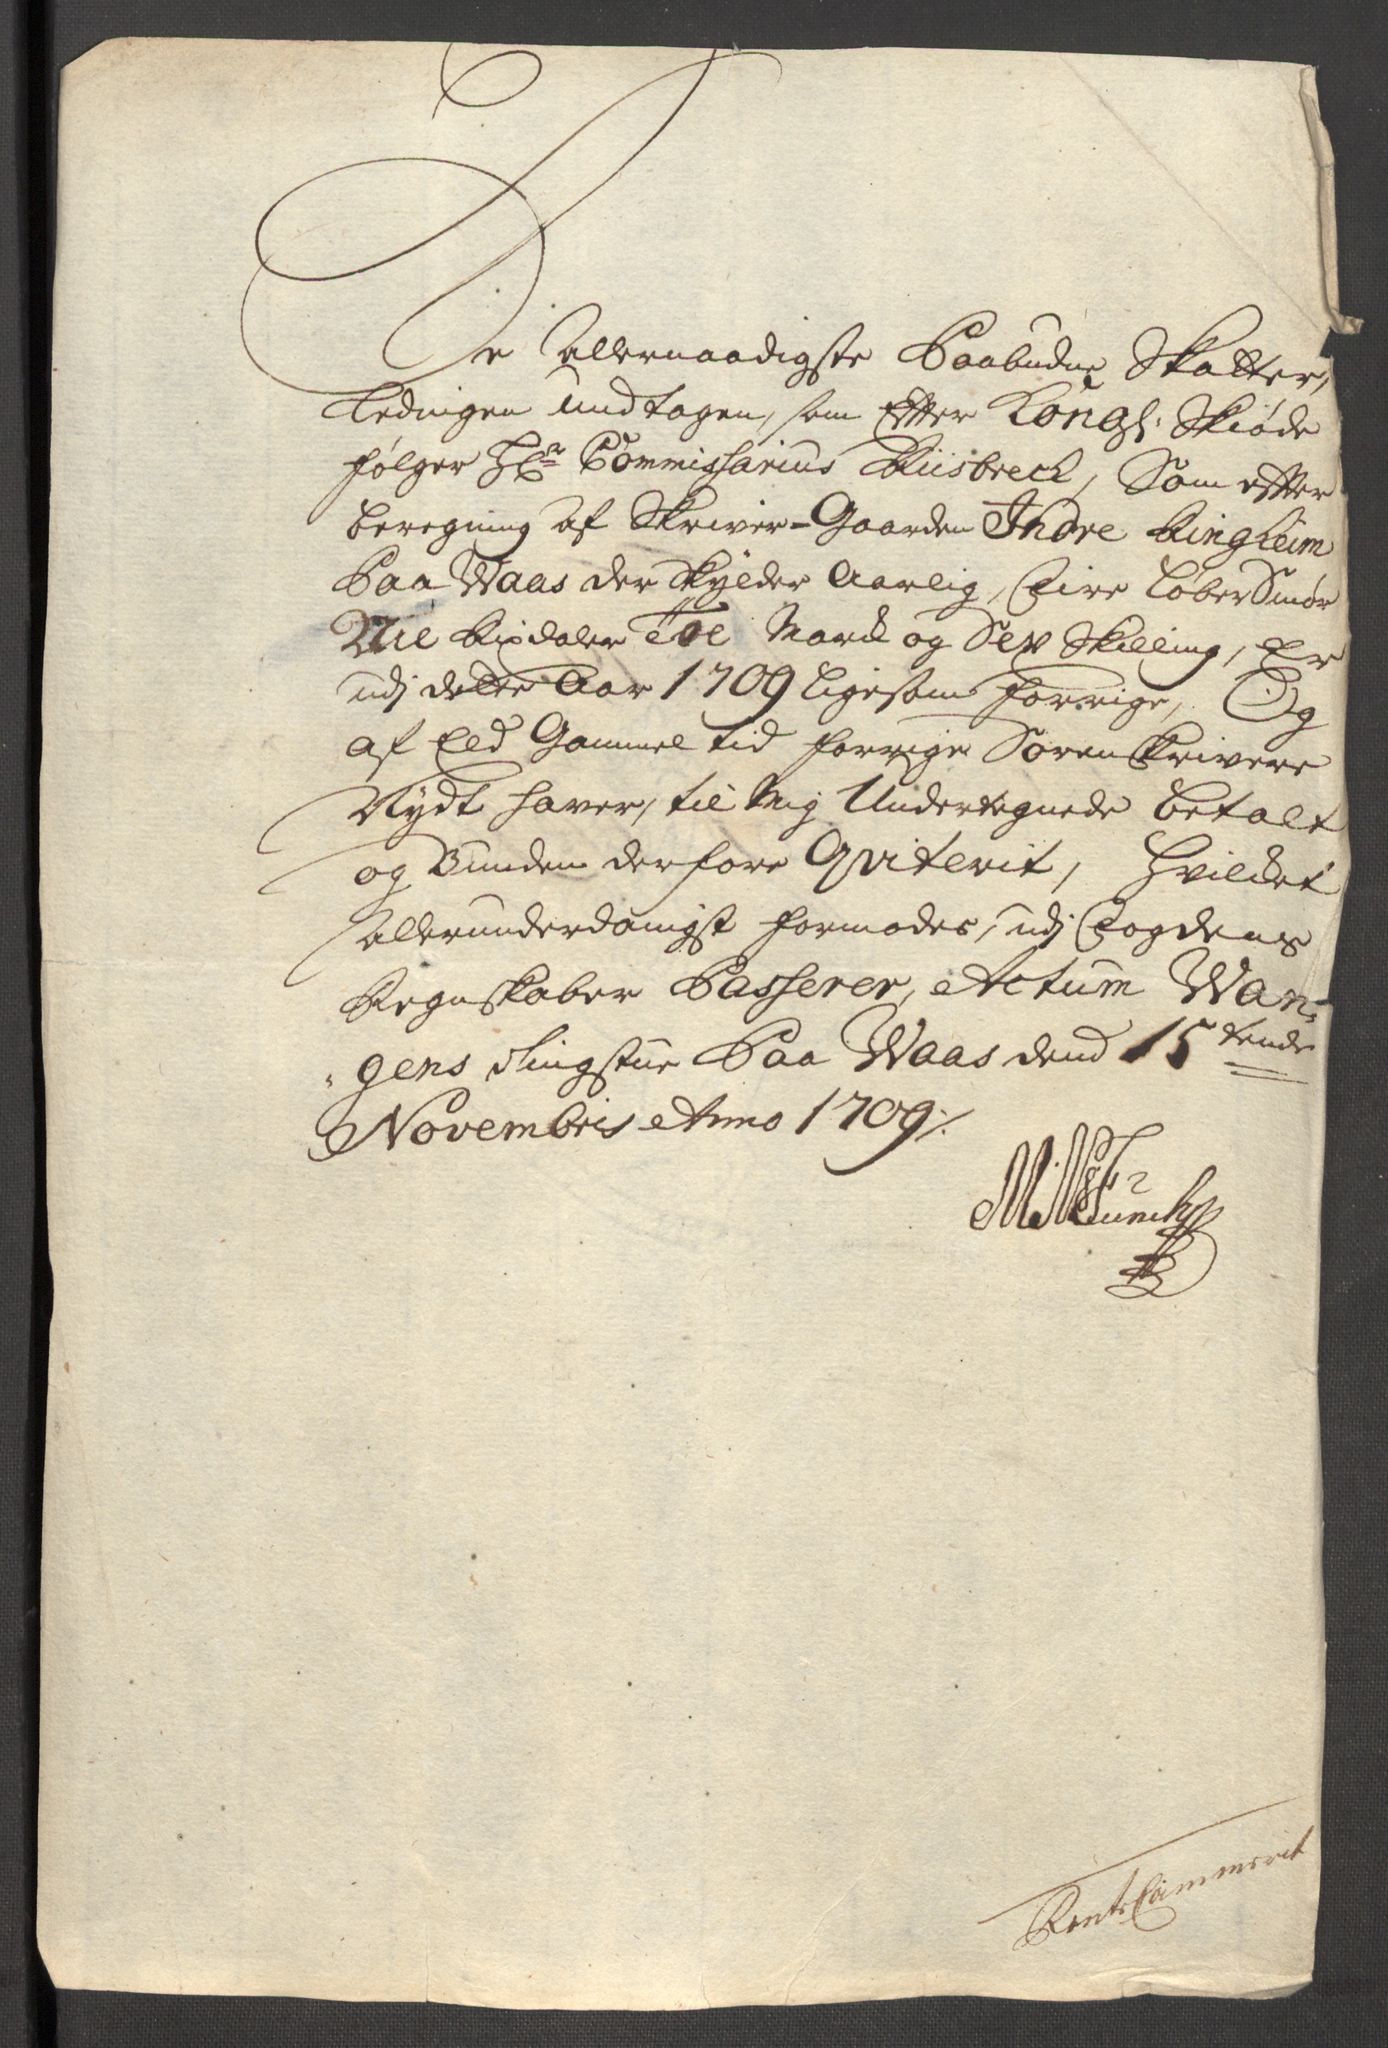 De Allernaadigste Paabudne Skatter,
Ledingen undtagen, som Efter Kongl: Skiøde
følger Hr Commissarius Riisbrech, Som efter
beregning af Skriver-Gaarden Indre Ringheim
Paa Waas der skylder Aarlig, Fire Løber Smør
Nie Rixdaler Toe Marck og Sex Skilling, Er
udj dette Aar 1709 ligesom forrige, Og
af Eld Gammel tid forrige Sorenskrivere
Nydt haver, til Mig Undertegnede betalt
og Bunden derfore Qviterit, Hvilcket
allerunderdanigst formodes, udj Fogdens
Regnskaber Passerer, Actum Wan-
gens Tingstue Paa Waas dend 15 tende
Novembris Anno 1709 ./.
Munch
RenteCammerit